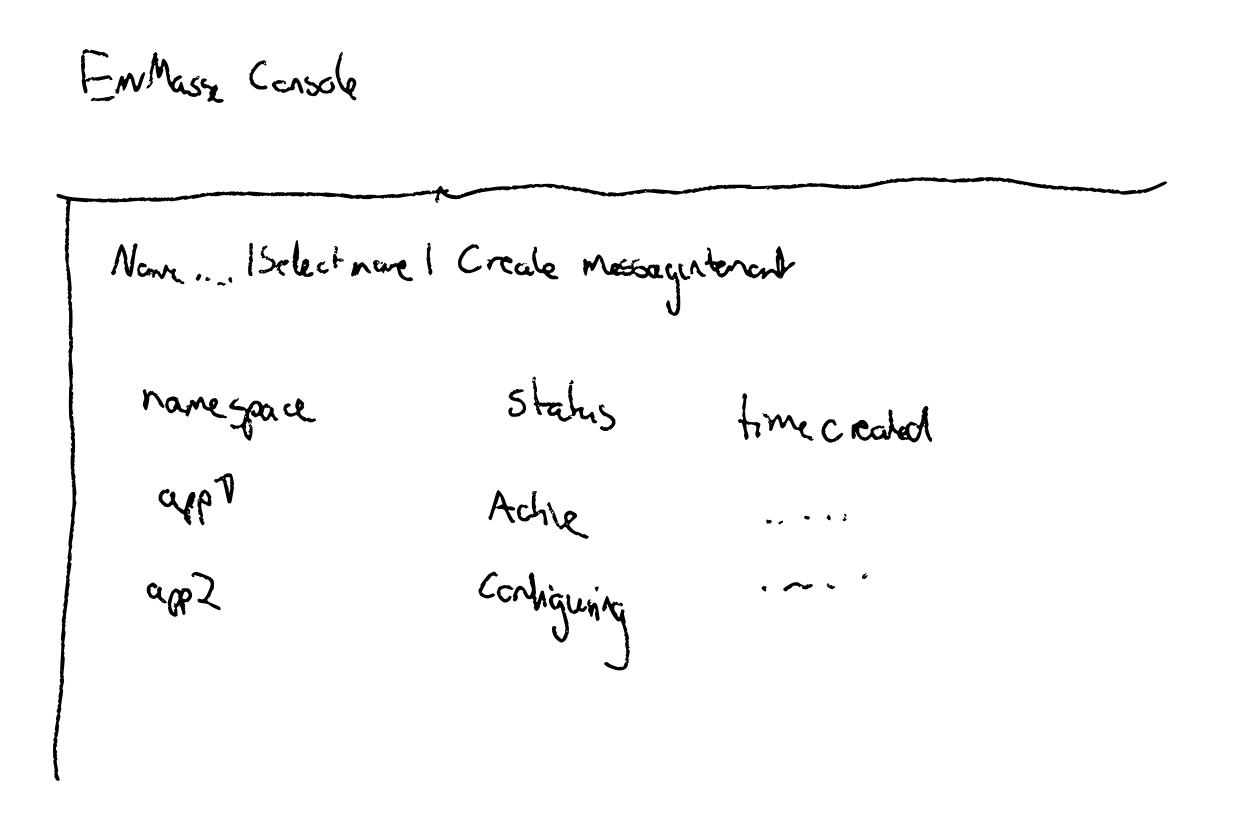 EnMasse Console
Name.... |Select name| Create messagingtenant
namespace status timecreated
app1 Active .....
app2 Configuring ....